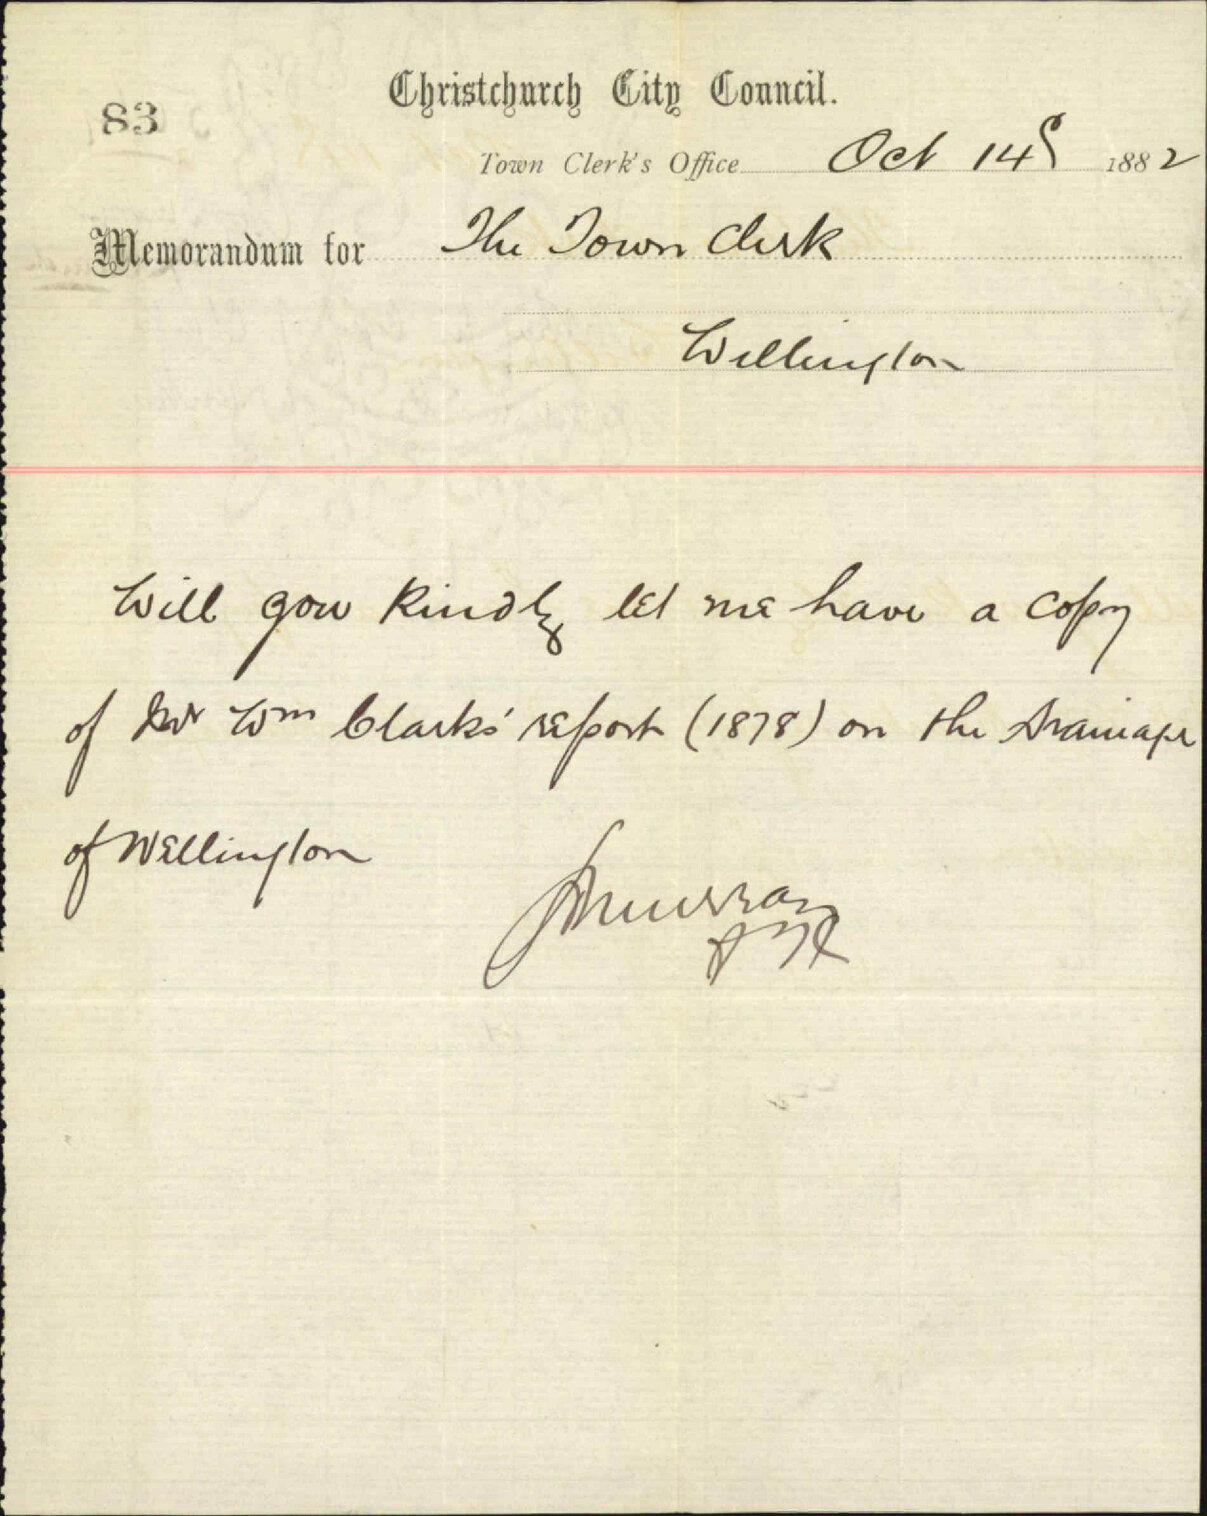 Christchurch City Council.
83
Town Clerk's Office Oct 14 1882
Memorandum for The Town Clerk
Wellington
Will you kindly let me have a copy
of Mr Wm Clark's report (1878) on the Drainage
of Wellington